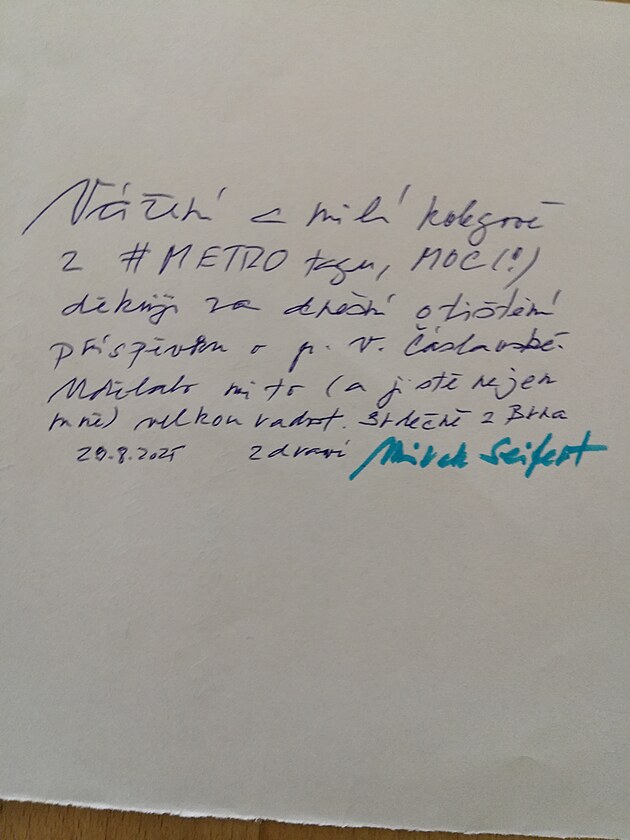 Vážení a milí kolegové
z #METRO tagu, MOC(!)
děkuji za dnešní otištění
příspěvku o p. V. Čáslavské.
Udělalo mi to (a jistě nejen
mně) velkou radost. Srdečně z Brna
29.8.2025 zdraví Mirek Seifert